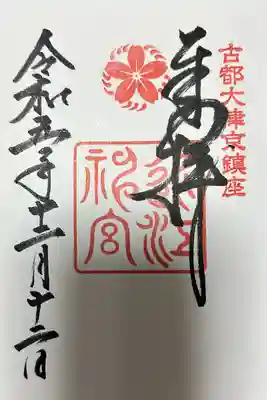 古都大津京鎮座
奉拝
近江
神宮
令和五年十二月十二日